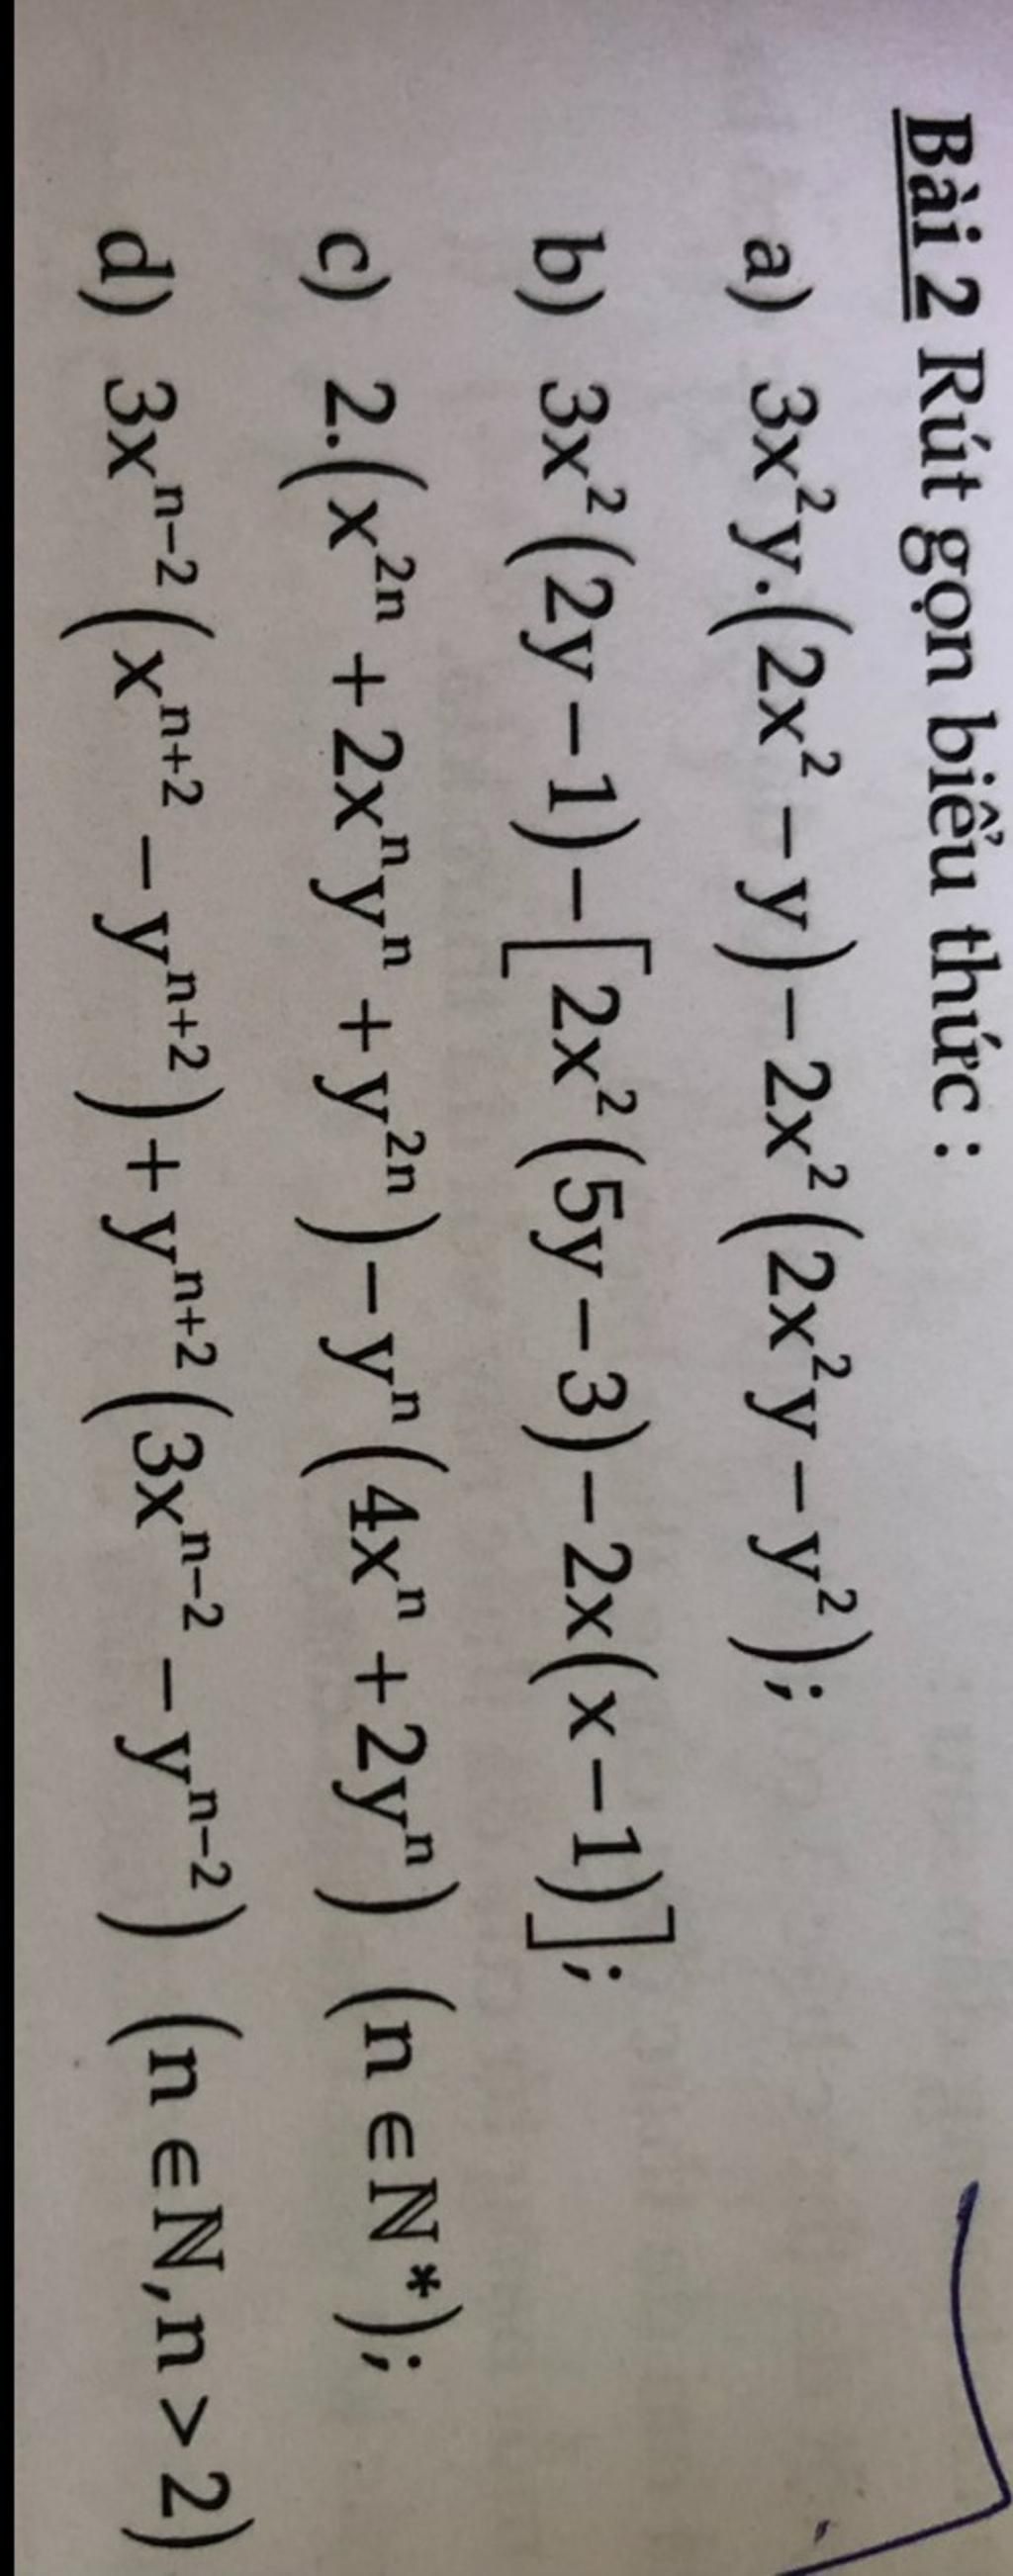 Bài 2 Rút gọn biểu thức :
a) 3x²y.(2x² − y) − 2x²(2x²y − y²);
b) 3x²(2y − 1) − [2x²(5y − 3) − 2x(x − 1)];
c) 2.(x²ⁿ + 2xⁿyⁿ + y²ⁿ) − yⁿ(4xⁿ + 2yⁿ) (n ∈ ℕ*);
d) 3xⁿ⁻²(xⁿ⁺² − yⁿ⁺²) + yⁿ⁺²(3xⁿ⁻² − yⁿ⁻²) (n ∈ ℕ, n > 2)